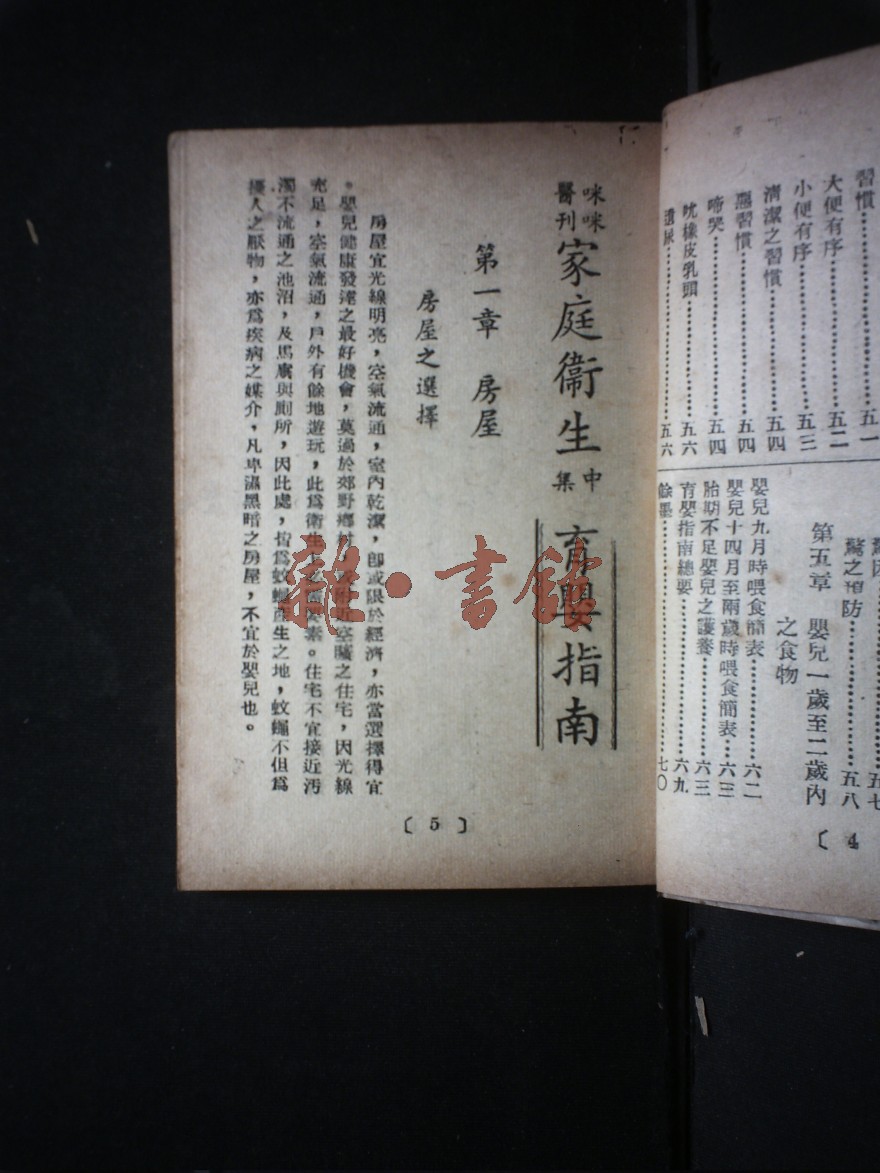 習慣……五一
大便有序……五二
小便有序……五三
清潔之習慣……五四
惡習慣……五四
啼哭……五四
吮橡皮乳頭……五六
遺尿……五六
五七
驚之預防……五八
第五章 嬰兒一歲至二歲內
之食物
嬰兒九月時喂食簡表……六二
嬰兒十四月至兩歲時喂食簡表……六三
胎期不足嬰兒之護養……六三
育嬰指南總要……六九
餘墨……七〇
〔4
咪咪
醫刊
家庭衞生
中
集
育嬰指南
第一章 房屋
房屋之選擇
房屋宜光線明亮，空氣流通，室內乾潔，卽或限於經濟，亦當選擇得宜
。嬰兒健康發達之最好機會，莫過於郊野鄉村，空曠之住宅，因光線
充足，空氣流通，戶外有餘地遊玩，此爲衞生素。住宅不宜接近汚
濁不流通之池沼，及馬廐與厠所，因此處，皆爲蚊產生之地，蚊蠅不但爲
擾人之厭物，亦爲疾病之媒介，凡卑濕黑暗之房屋，不宜於嬰兒也。
〔5〕
雜·書館